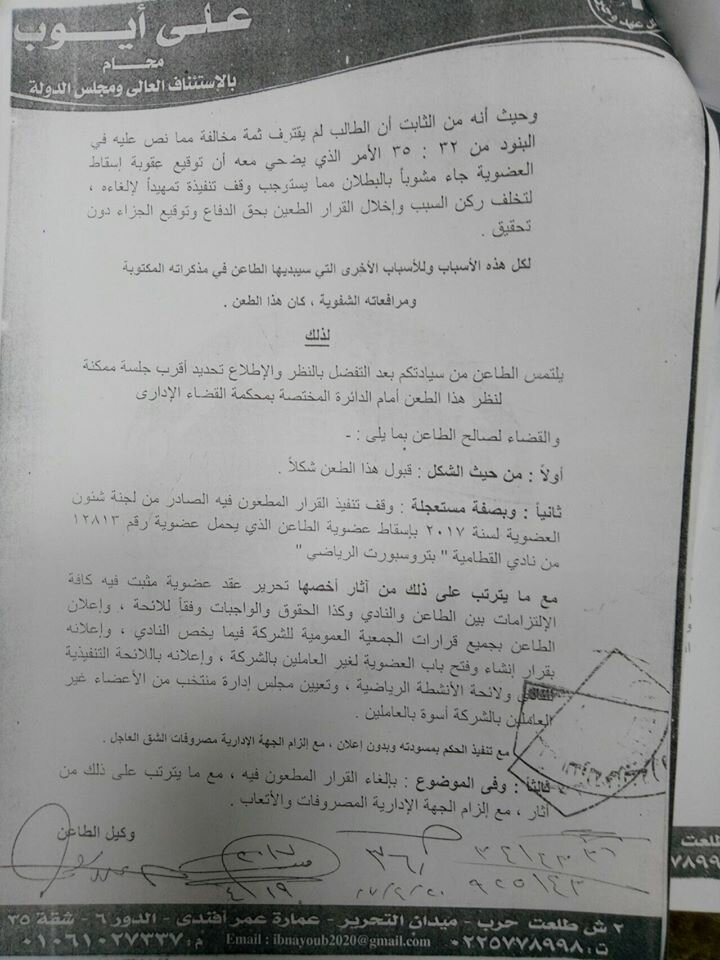 على أيوب
محام
بالاستئناف العالى ومجلس الدولة
وحيث أنه من الثابت أن الطالب لم يقترف ثمة مخالفة مما نص عليه في
البنود من ٣٢ : ٣٥ الأمر الذي يضحي معه أن توقيع عقوبة إسقاط
العضوية جاء مشوباً بالبطلان مما يستوجب وقف تنفيذة تمهيداً لإلغاءه ،
لتخلف ركن السبب وإخلال القرار الطعين بحق الدفاع وتوقيع الجزاء دون
تحقيق .
لكل هذه الأسباب وللأسباب الأخرى التي سيبديها الطاعن في مذكراته المكتوبة
ومرافعاته الشفوية ، كان هذا الطعن .
لذلك
يلتمس الطاعن من سيادتكم بعد التفضل بالنظر والإطلاع تحديد أقرب جلسة ممكنة
لنظر هذا الطعن أمام الدائرة المختصة بمحكمة القضاء الإدارى
والقضاء لصالح الطاعن بما يلى : ـ
أولاً : من حيث الشكل : قبول هذا الطعن شكلاً .
ثانياً : وبصفة مستعجلة : وقف تنفيذ القرار المطعون فيه الصادر من لجنة شئون
العضوية لسنة ٢٠١٧ بإسقاط عضوية الطاعن الذي يحمل عضوية رقم ١٢٨١٣
من نادي القطامية " بتروسبورت الرياضي "
مع ما يترتب على ذلك من آثار أخصها تحرير عقد عضوية مثبت فيه كافة
الإلتزامات بين الطاعن والنادي وكذا الحقوق والواجبات وفقاً للائحة ، وإعلان
الطاعن بجميع قرارات الجمعية العمومية للشركة فيما يخص النادي ، وإعلانه
بقرار إنشاء وفتح باب العضوية لغير العاملين بالشركة ، وإعلانه باللائحة التنفيذية
للنادي ولائحة الأنشطة الرياضية ، وتعيين مجلس إدارة منتخب من الأعضاء غير
العاملين بالشركة أسوة بالعاملين .
مع تنفيذ الحكم بمسودته وبدون إعلان ، مع إلزام الجهة الادارية مصروفات الشق العاجل .
ثالثاً : وفى الموضوع : بإلغاء القرار المطعون فيه ، مع ما يترتب على ذلك من
آثار ، مع إلزام الجهة الإدارية المصروفات والأتعاب .
وكيل الطاعن
٢ ش طلعت حرب - ميدان التحرير - عمارة عمر أفندى - الدور ٦ - شقة ٣٥
ت : ٠٢٢٥٧٧٨٩٩٨ Email : ibnayoub2020@gmail.com م : ٠١٠٦١٠٢٧٣٣٧